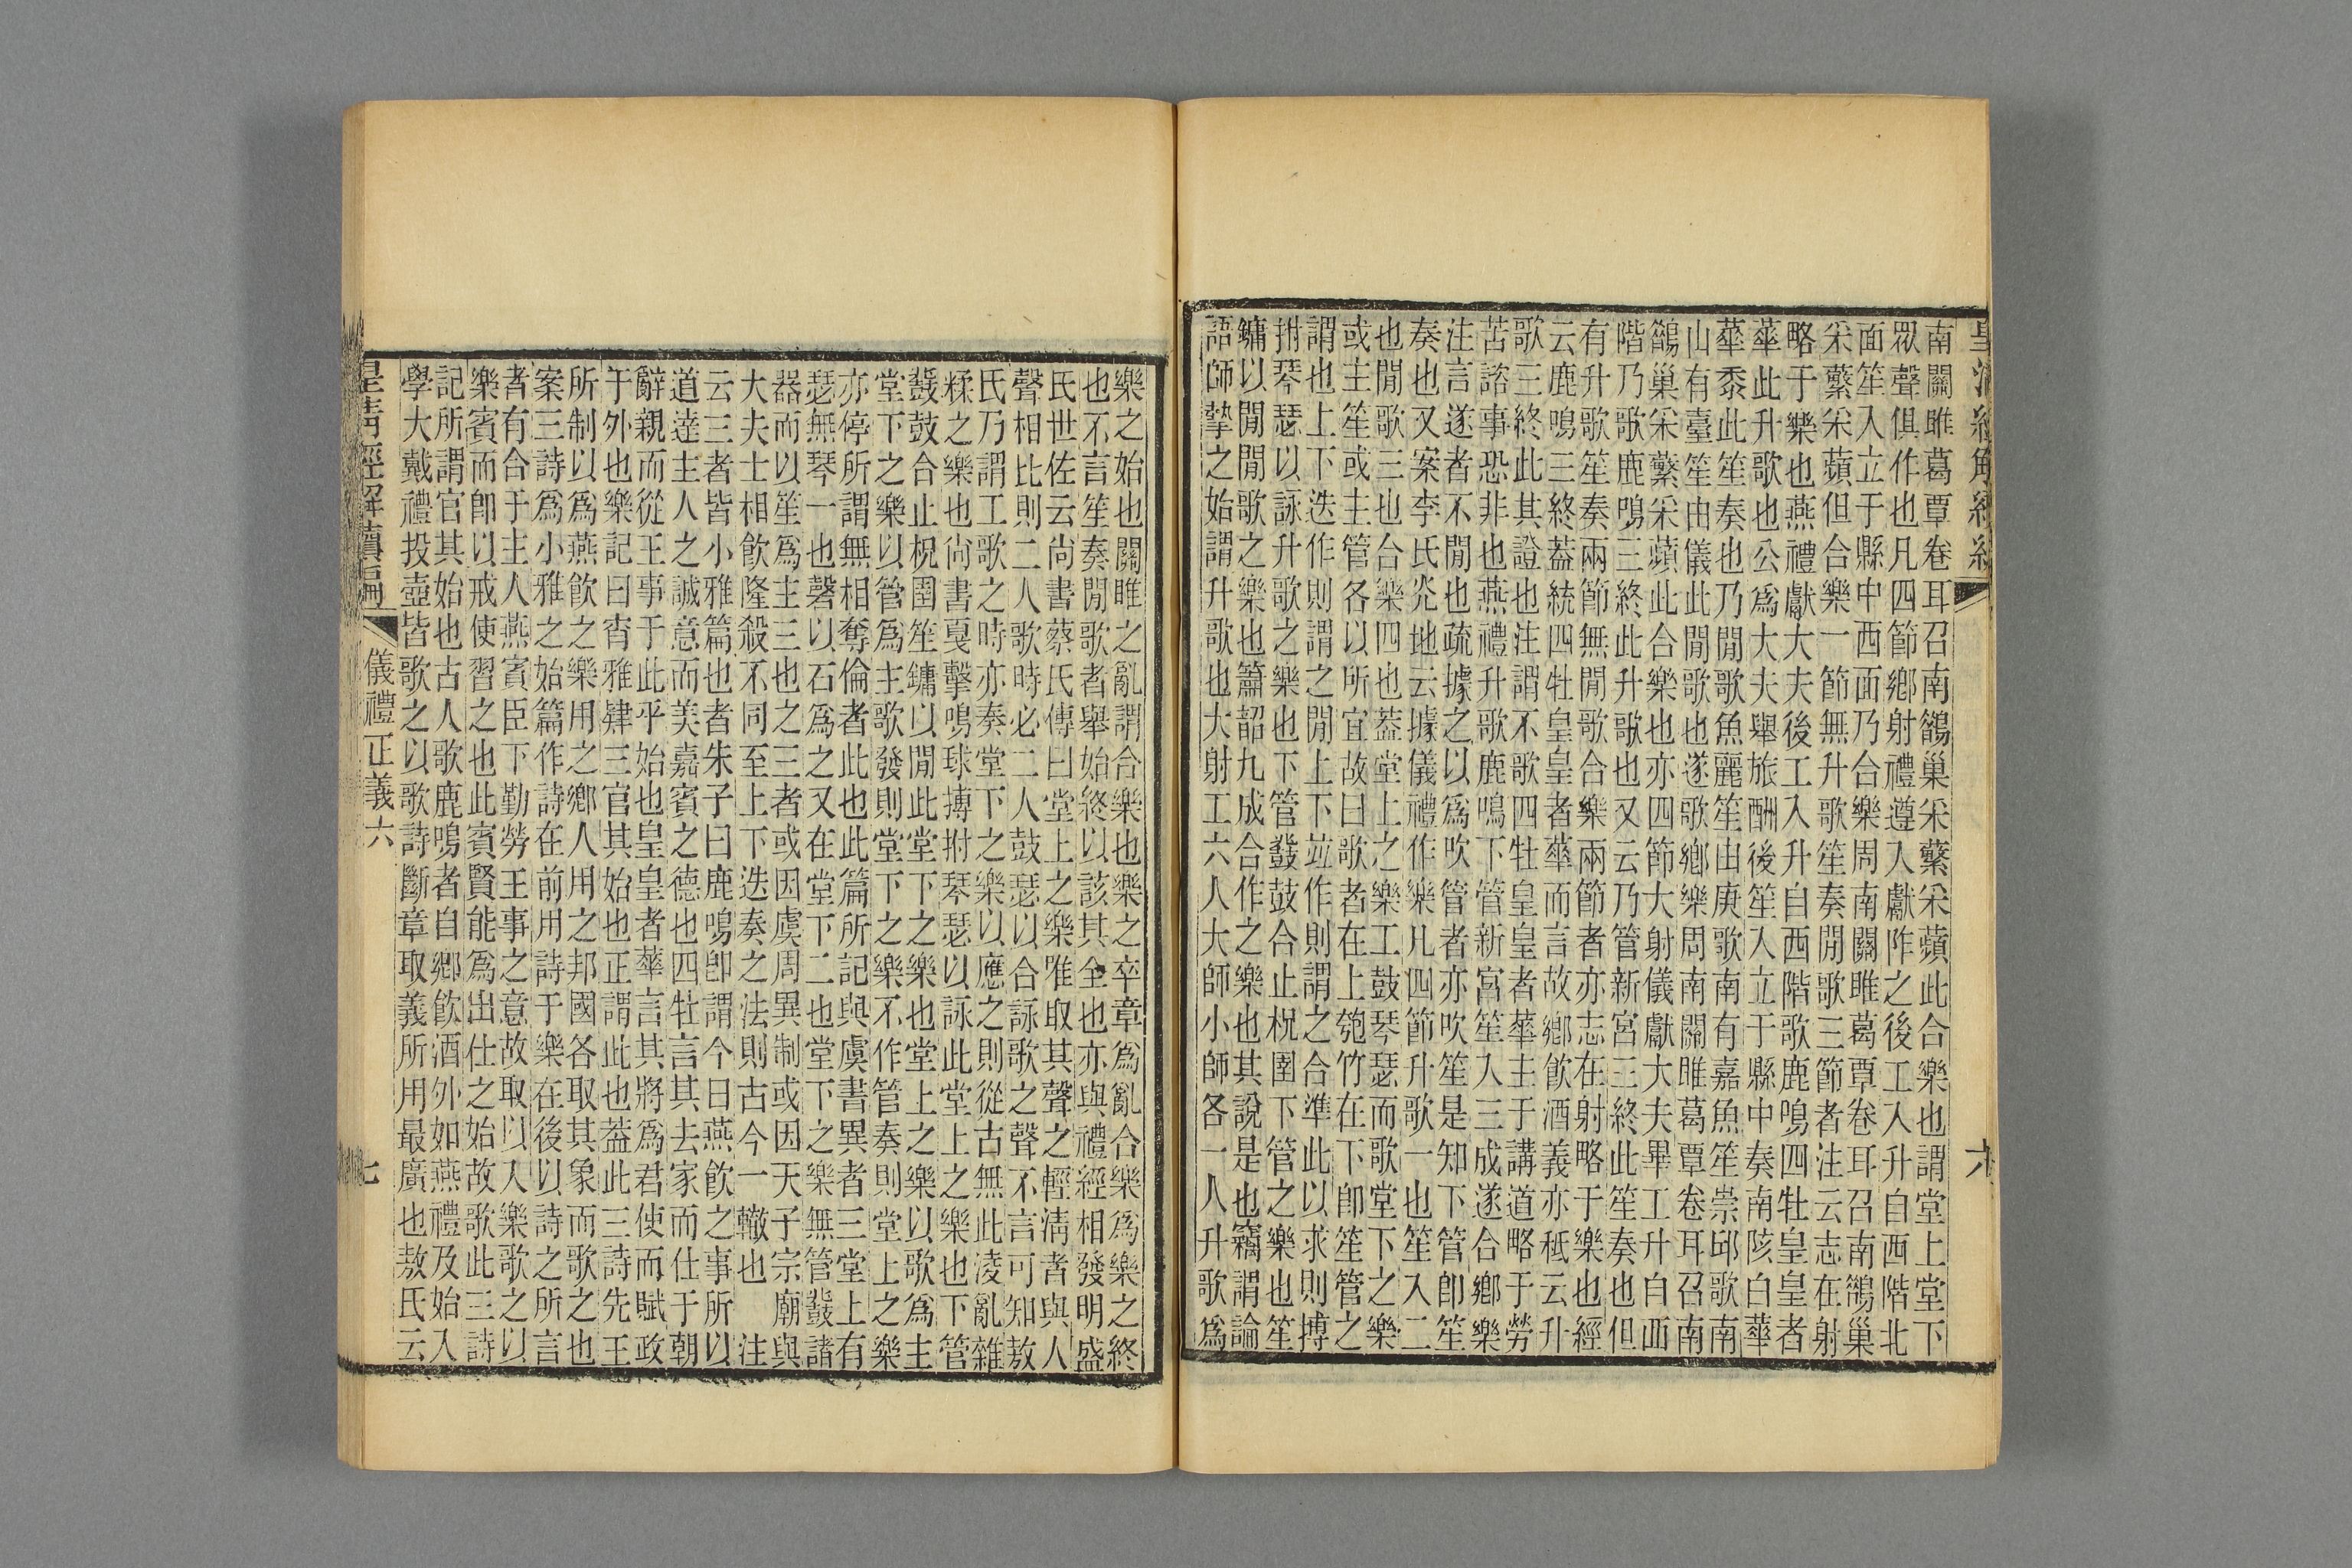 南關雎葛覃卷耳召南鵲巢采蘩采蘋此合樂也謂堂上堂下
眾聲俱作也凡四節鄉射禮遵入獻阼之後工入升自西階北
面笙入立于縣中西面乃合樂周南關雎葛覃卷耳召南鵲巢
采蘩采蘋但合樂一節無升歌笙奏閒歌三節者注云志在射
略于樂也燕禮獻大夫後工入升自西階歌鹿鳴四牡皇皇者
華此升歌也公為大夫舉旅酬後笙入立于縣中奏南陔白華
華黍此笙奏也乃閒歌魚麗笙由庚歌南有嘉魚笙崇邱歌南
山有臺笙由儀此閒歌也遂歌鄉樂周南關雎葛覃卷耳召南
鵲巢采蘩采蘋此合樂也亦四節大射儀獻大夫畢工升自西
階乃歌鹿鳴三終此升歌也又云乃管新宮三終此笙奏也但
有升歌笙奏兩節無閒歌合樂兩節者亦志在射略于樂也經
云鹿鳴三終葢統四牡皇皇者華而言故鄉飲酒義亦秪云升
歌三終此其證也注謂不歌四牡皇皇者華主于講道略于勞
苦諮事恐非也燕禮升歌鹿鳴下管新宮笙入三成遂合鄉樂
注言遂者不閒也疏據之以為吹管者亦吹笙是知下管卽笙
奏也又案李氏灮地云據儀禮作樂凡四節升歌一也笙入二
也閒歌三也合樂四也葢堂上之樂工鼓琴瑟而歌堂下之樂
或主笙或主管各以所宜故曰歌者在上匏竹在下卽笙管之
謂也上下迭作則謂之閒上下竝作則謂之合準此以求則搏
拊琴瑟以詠升歌之樂也下管鼗鼓合止柷圉下管之樂也笙
鏞以閒閒歌之樂也簫韶九成合作之樂也其說是也竊謂論
語師摯之始謂升歌也大射工六人大師小師各一人升歌為
樂之始也關雎之亂謂合樂也樂之卒章為亂合樂為樂之終
也不言笙奏閒歌者舉始終以該其全也亦與禮經相發明盛
氏世佐云尙書蔡氏傳曰堂上之樂唯取其聲之輕淸者與人
聲相比則二人歌時必二人鼓瑟以合詠歌之聲不言可知敖
氏乃謂工歌之時亦奏堂下之樂以應之則從古無此淩亂雜
糅之樂也尙書戛擊鳴球搏拊琴瑟以詠此堂上之樂也下管
鼗鼓合止柷圉笙鏞以閒此堂下之樂也堂上之樂以歌為主
堂下之樂以管為主歌發則堂下之樂不作管奏則堂上之樂
亦停所謂無相奪倫者此也此篇所記與虞書異者三堂上有
瑟無琴一也磬以石為之又在堂下二也堂下之樂無管鼗諸
器而以笙為主三也之三者或因虞周異制或因天子宗廟與
大夫士相飲隆殺不同至上下迭奏之法則古今一轍也　注
云三者皆小雅篇也者朱子曰鹿鳴卽謂今日燕飲之事所以
道達主人之誠意而美嘉賓之德也四牡言其去家而仕于朝
辭親而從王事于此乎始也皇皇者華言其將為君使而賦政
于外也樂記曰宵雅肄三官其始也正謂此也葢此三詩先王
所制以為燕飲之樂用之鄉人用之邦國各取其象而歌之也
案三詩為小雅之始篇作詩在前用詩于樂在後以詩之所言
者有合于主人燕賓臣下勤勞王事之意故取以入樂歌之以
樂賓而卽以戒使習之也此賓賢能為出仕之始故歌此三詩
記所謂官其始也古人歌鹿鳴者自鄉飲酒外如燕禮及始入
學大戴禮投壺皆歌之以歌詩斷章取義所用最廣也敖氏云
皇清經解續編
儀禮正義六
七